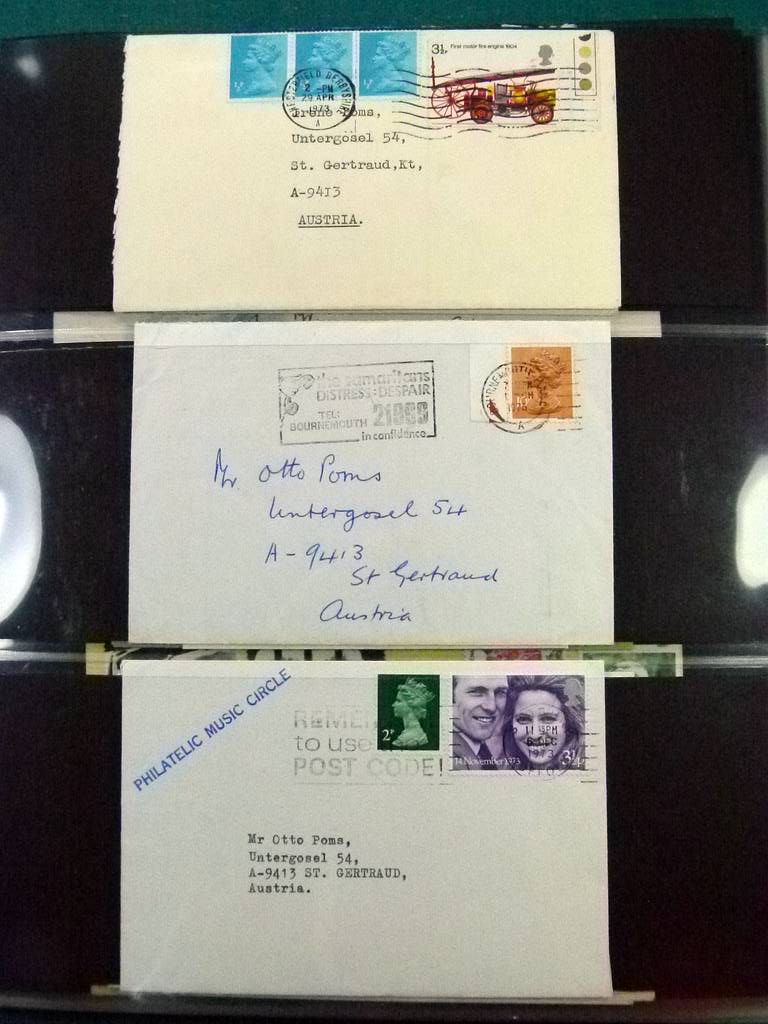 3½p First motor fire engine 1904
½p ½p ½p
CHESTERFIELD DERBYSHIRE
2 - PM
29 APR
1973
A
Irene Poms,
Untergösel 54,
St. Gertraud,Kt,
A-9413
AUSTRIA.
the samaritans
DISTRESS:DESPAIR
TEL:
BOURNEMOUTH 21999
in confidence
A
Mr Otto Poms
Untergosel 54
A - 9413
St Gertraud
Austria
PHILATELIC MUSIC CIRCLE
2P
to use
POST CODE!
14 November 1973
3½p
6 DEC
1973
Mr Otto Poms,
Untergosel 54,
A-9413 ST. GERTRAUD,
Austria.